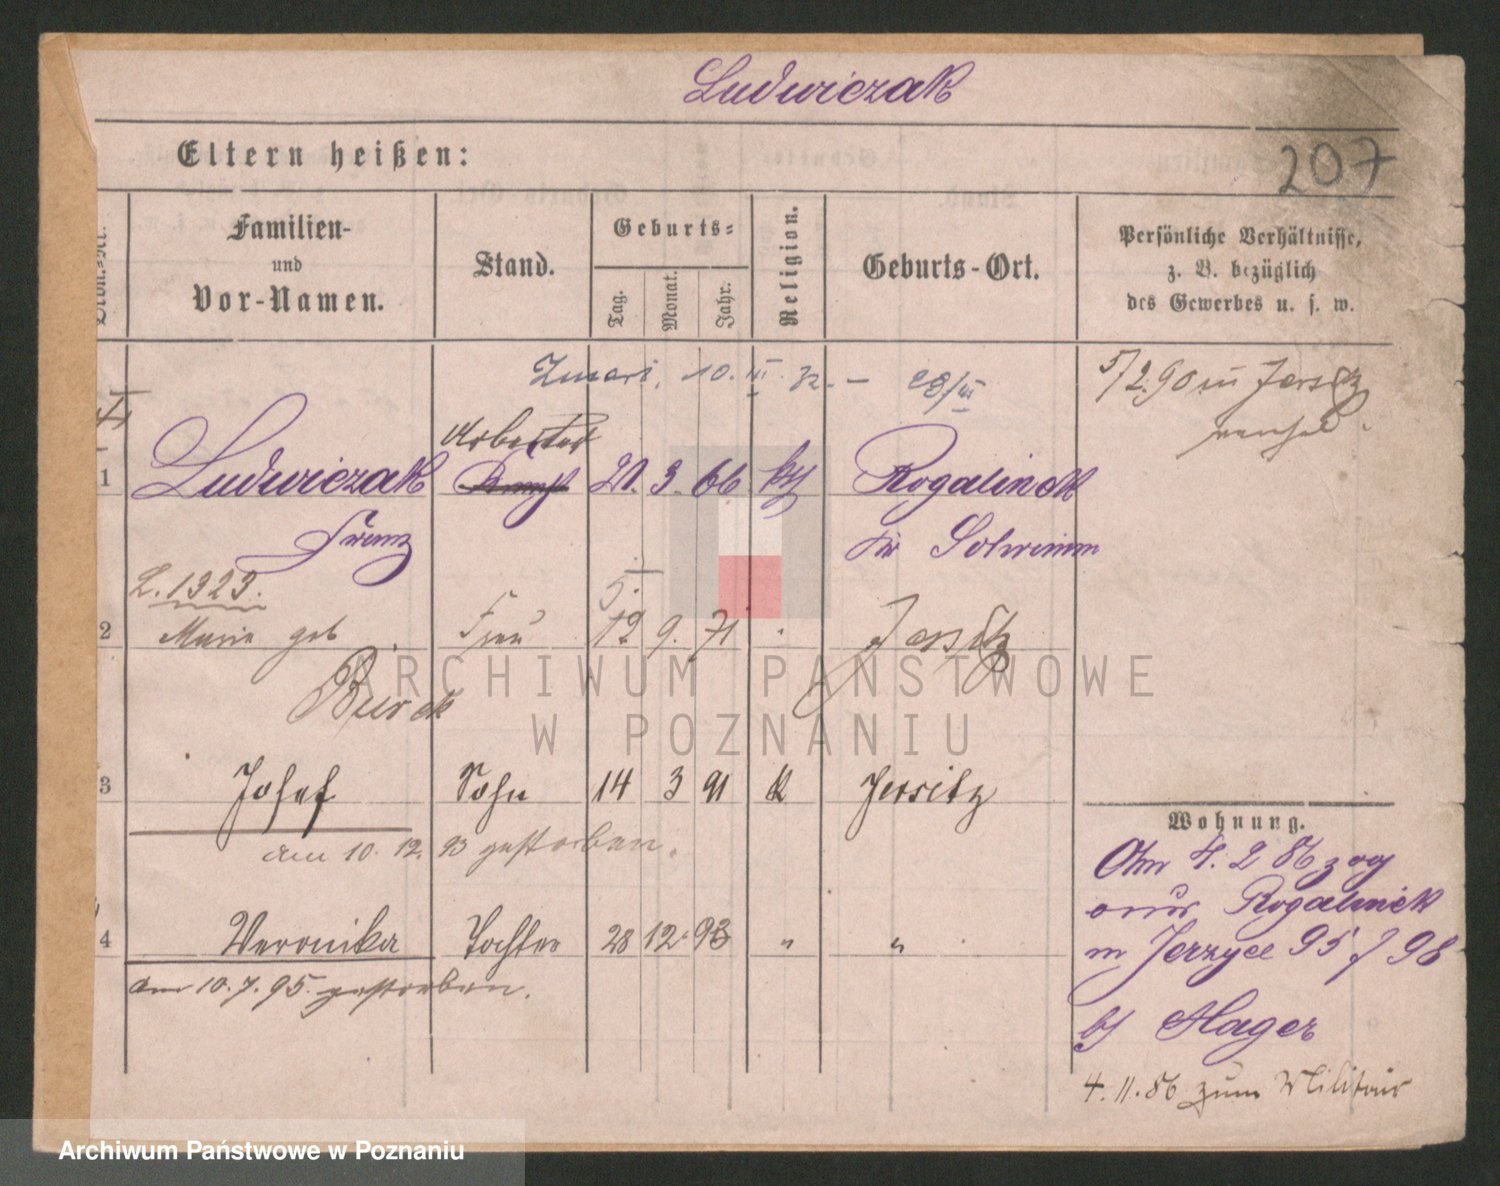 Ludwiczak
207
Eltern heißen:
Familien-
und
Vor-Namen.
Stand.
Geburts-
Tag.
Monat.
Jahr.
Religion.
Geburts-Ort.
Persönliche Verhältnisse,
z. B. bezüglich
des Gewerbes u. s. w.
Zmarł, 10. III. 32. – 23/III
5/2.90 in Jersitz
Arbeiter
1 Ludwiczak 3. 66 Rogalinek
Franz Kr Schrimm
L. 1323.
2 Marie geb Frau 12 9. 71 Jersitz
ARCHIWUM PAŃSTWOWE
W POZNANIU
3 Josef Sohn 14 3 91 k Jersitz
am 10. 12. 93 gestorben.
4 Veronika Tochter 28 12. 93 " "
am 10. 7. 95. gestorben.
Wohnung.
Am 4. 2 86 zog
aus Rogalinek
n Jerzyce 95 / 98
bei Hager
4. 11. 86 zum Militair
Archiwum Państwowe w Poznaniu